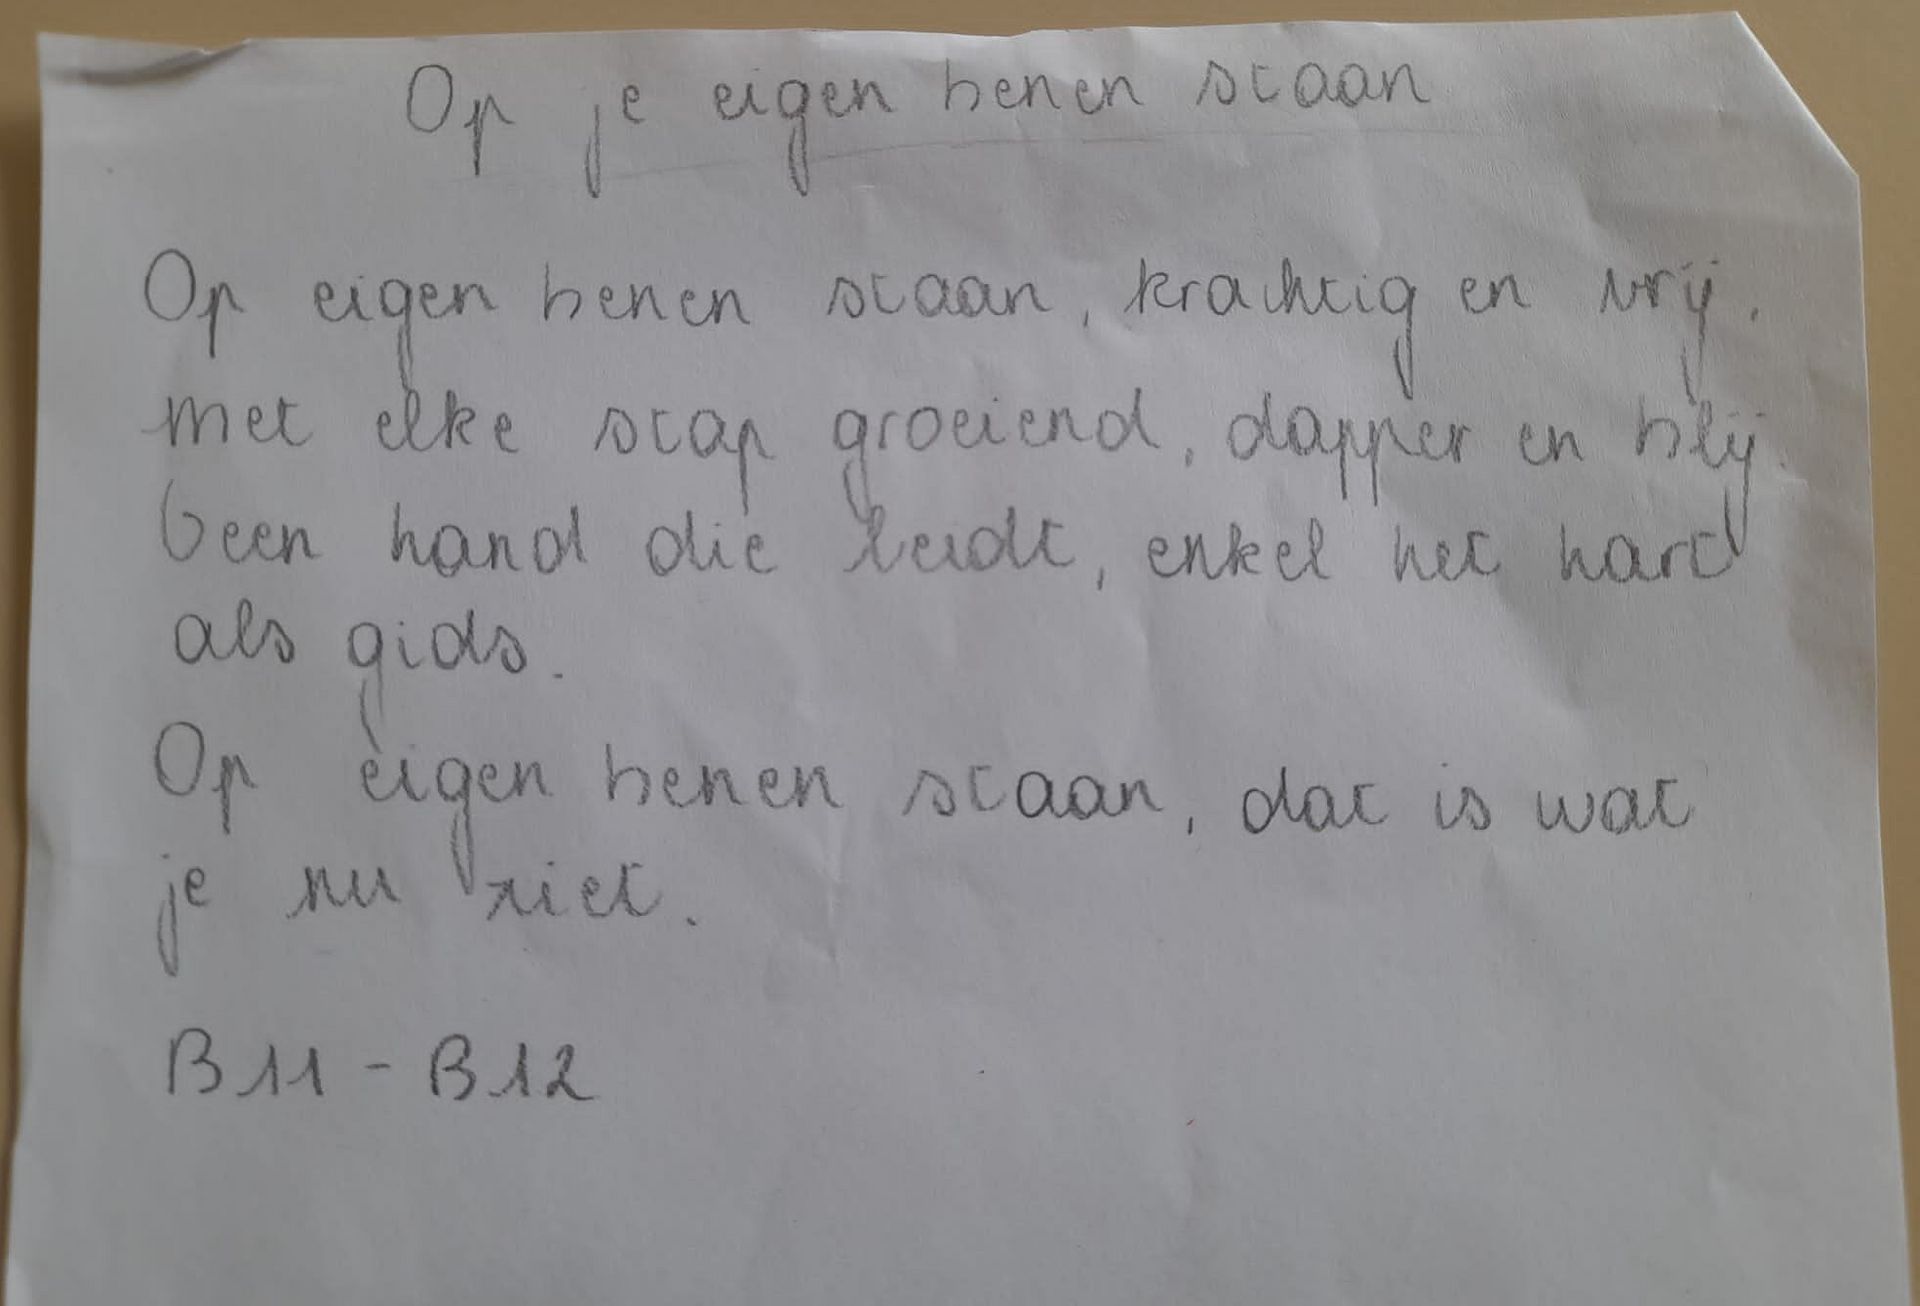 Op je eigen benen staan
Op eigen benen staan, krachtig en vrij.
met elke stap groeiend, dapper en blij.
Geen hand die leidt, enkel het hart
als gids.
Op eigen benen staan, dat is wat
je nu ziet.
B11 - B12